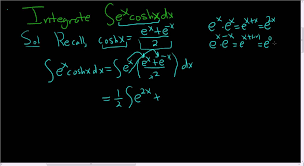 Integrate ∫e^x coshx dx
Sol Recall, coshx = (e^x + e^-x)/2
e^x · e^x = e^(x+x) = e^2x
e^x · e^-x = e^(x+(-x)) = e^0
∫e^x coshx dx = ∫e^x ((e^x + e^-x)/2) dx
= 1/2 ∫e^2x +